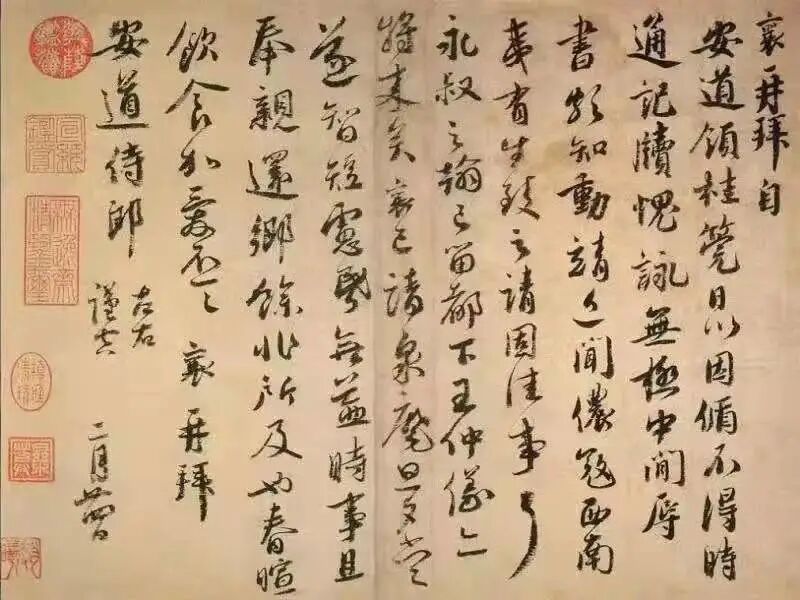 襄再拜自
安道領桂筦日以因循不得時
通記牘愧詠無極中間辱
書頗知動靖近聞儂寇西南
夷有生致之請固佳事耳
永叔之翰已留都下王仲儀亦
將來矣襄已請泉麾旦夕當
遂智短慮昬無益時事且
奉親還鄉餘非所及也春暄
飲食加愛不一一 襄再拜
安道侍郎
左右
謹空
二月廿四日